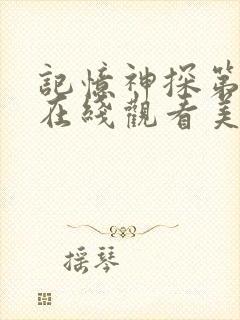 記憶神探第
在綫觀看美
摇琴